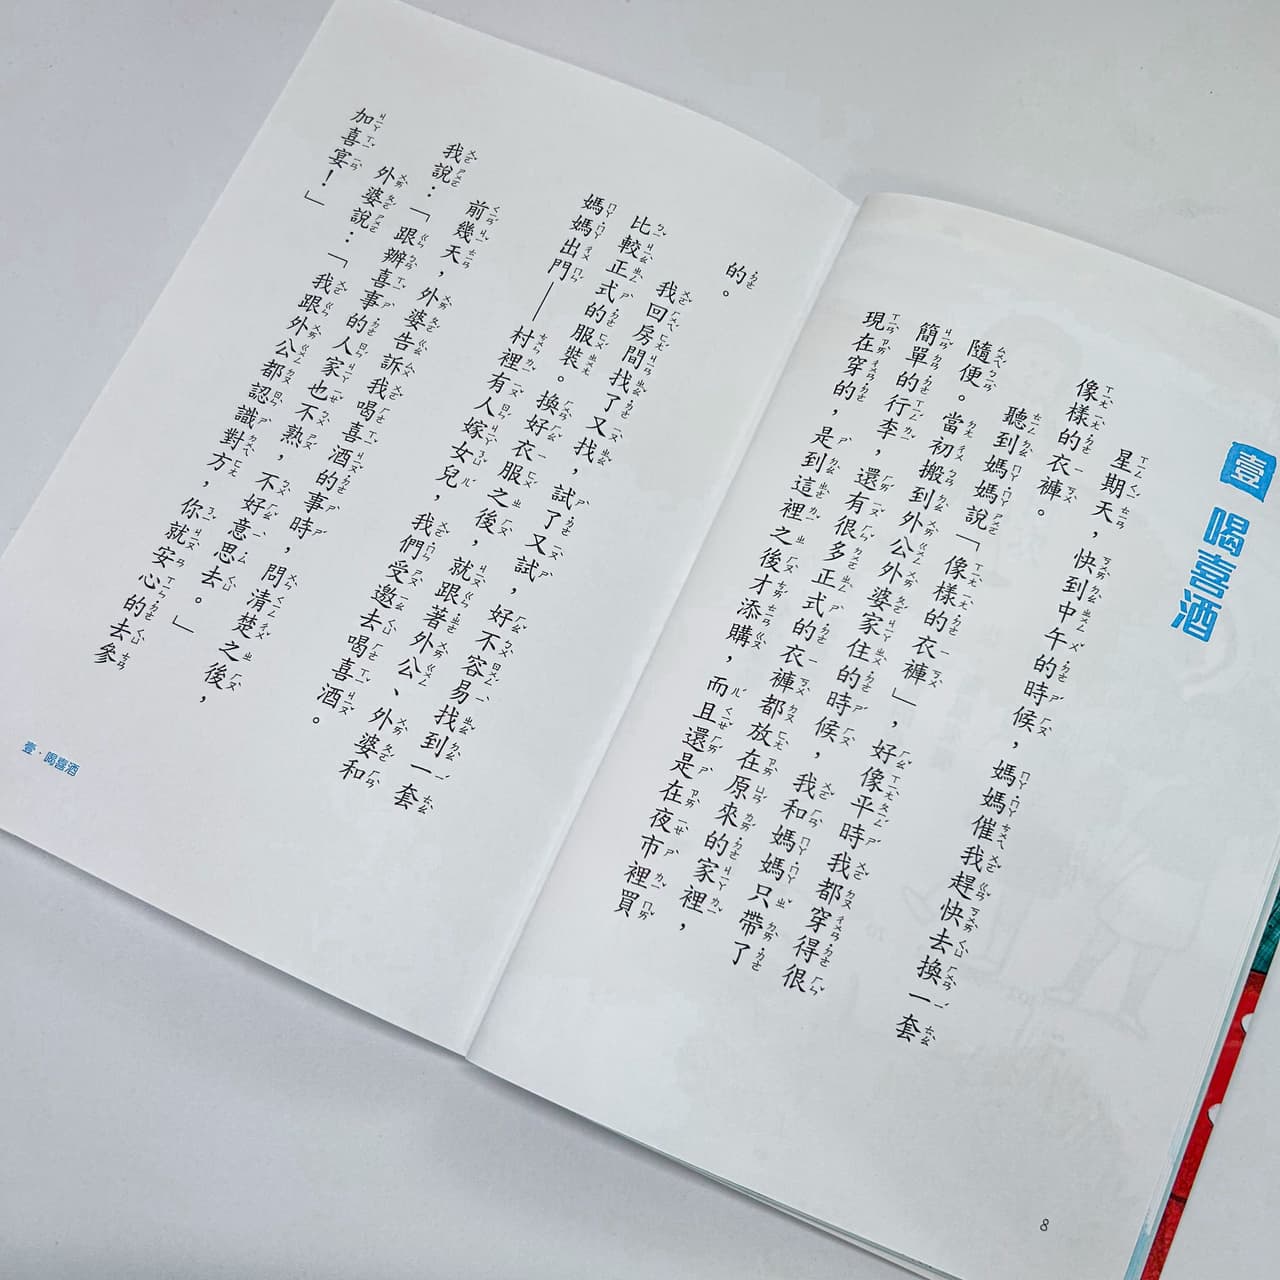 壹 喝喜酒
星期天，快到中午的時候，媽媽催我趕快去換一套
像樣的衣褲。
聽到媽媽說「像樣的衣褲」，好像平時我都穿得很
隨便。當初搬到外公外婆家住的時候，我和媽媽只帶了
簡單的行李，還有很多正式的衣褲都放在原來的家裡，
現在穿的，是到這裡之後才添購，而且還是在夜市裡買
8
的。
我回房間找了又找，試了又試，好不容易找到一套
比較正式的服裝。換好衣服之後，就跟著外公、外婆和
媽媽出門——村裡有人嫁女兒，我們受邀去喝喜酒。
前幾天，外婆告訴我喝喜酒的事時，問清楚之後，
我說：「跟辦喜事的人家也不熟，不好意思去。」
外婆說：「我跟外公都認識對方，你就安心的去參
加喜宴！」
壹·喝喜酒